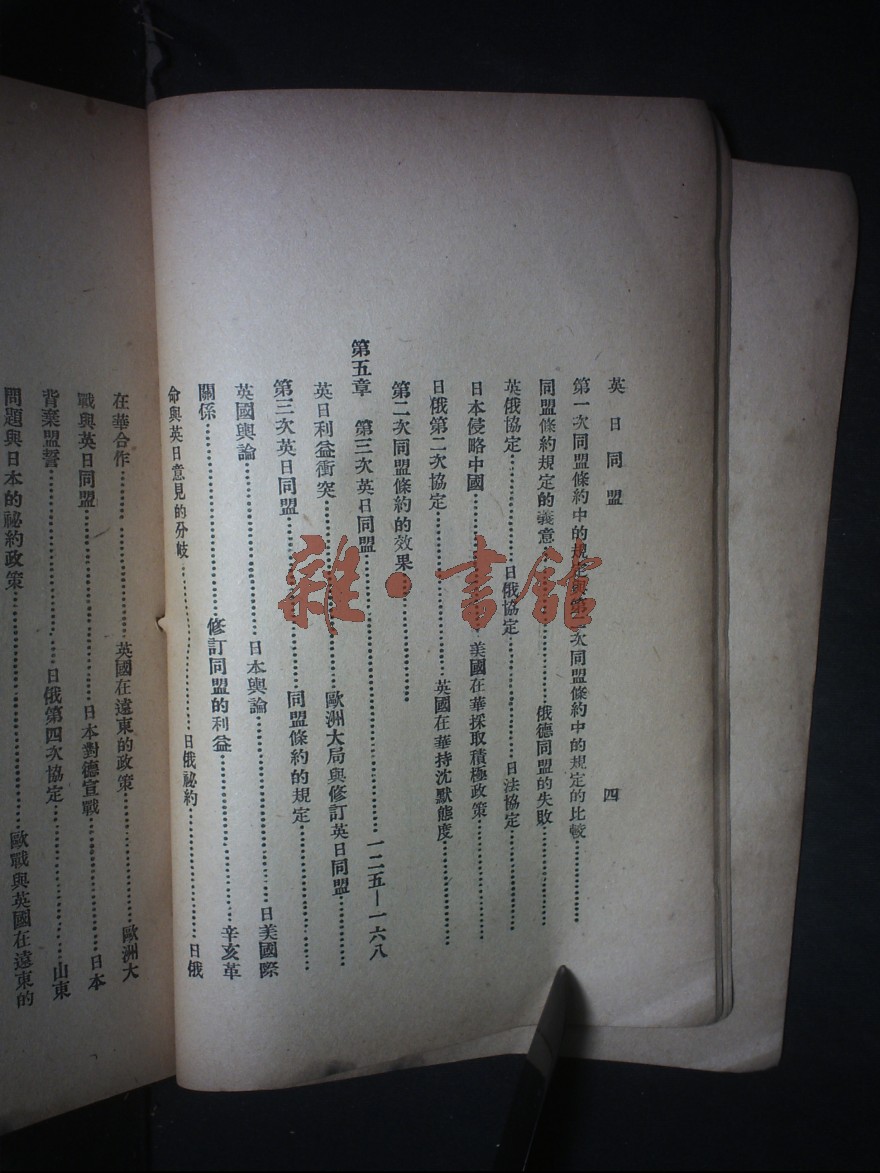 英日同盟 四
第一次同盟條約中的規定與第二次同盟條約中的規定的比較……
同盟條約規定的義意……俄德同盟的失敗……
英俄協定……日俄協定……日法協定……
日本侵略中國……美國在華採取積極政策……
日俄第二次協定……英國在華持沈默態度……
第二次同盟條約的效果……
第五章 第三次英日同盟……一二五—一六八
英日利益衝突……歐洲大局與修訂英日同盟……
第三次英日同盟……同盟條約的規定……
英國輿論……日本輿論……日美國際
關係……修訂同盟的利益……辛亥革
命與英日意見的分岐……日俄祕約……日俄
在華合作……英國在遠東的政策……歐洲大
戰與英日同盟……日本對德宣戰……日本
背棄盟誓……日俄第四次協定……山東
問題與日本的祕約政策……歐戰與英國在遠東的
雜·書館